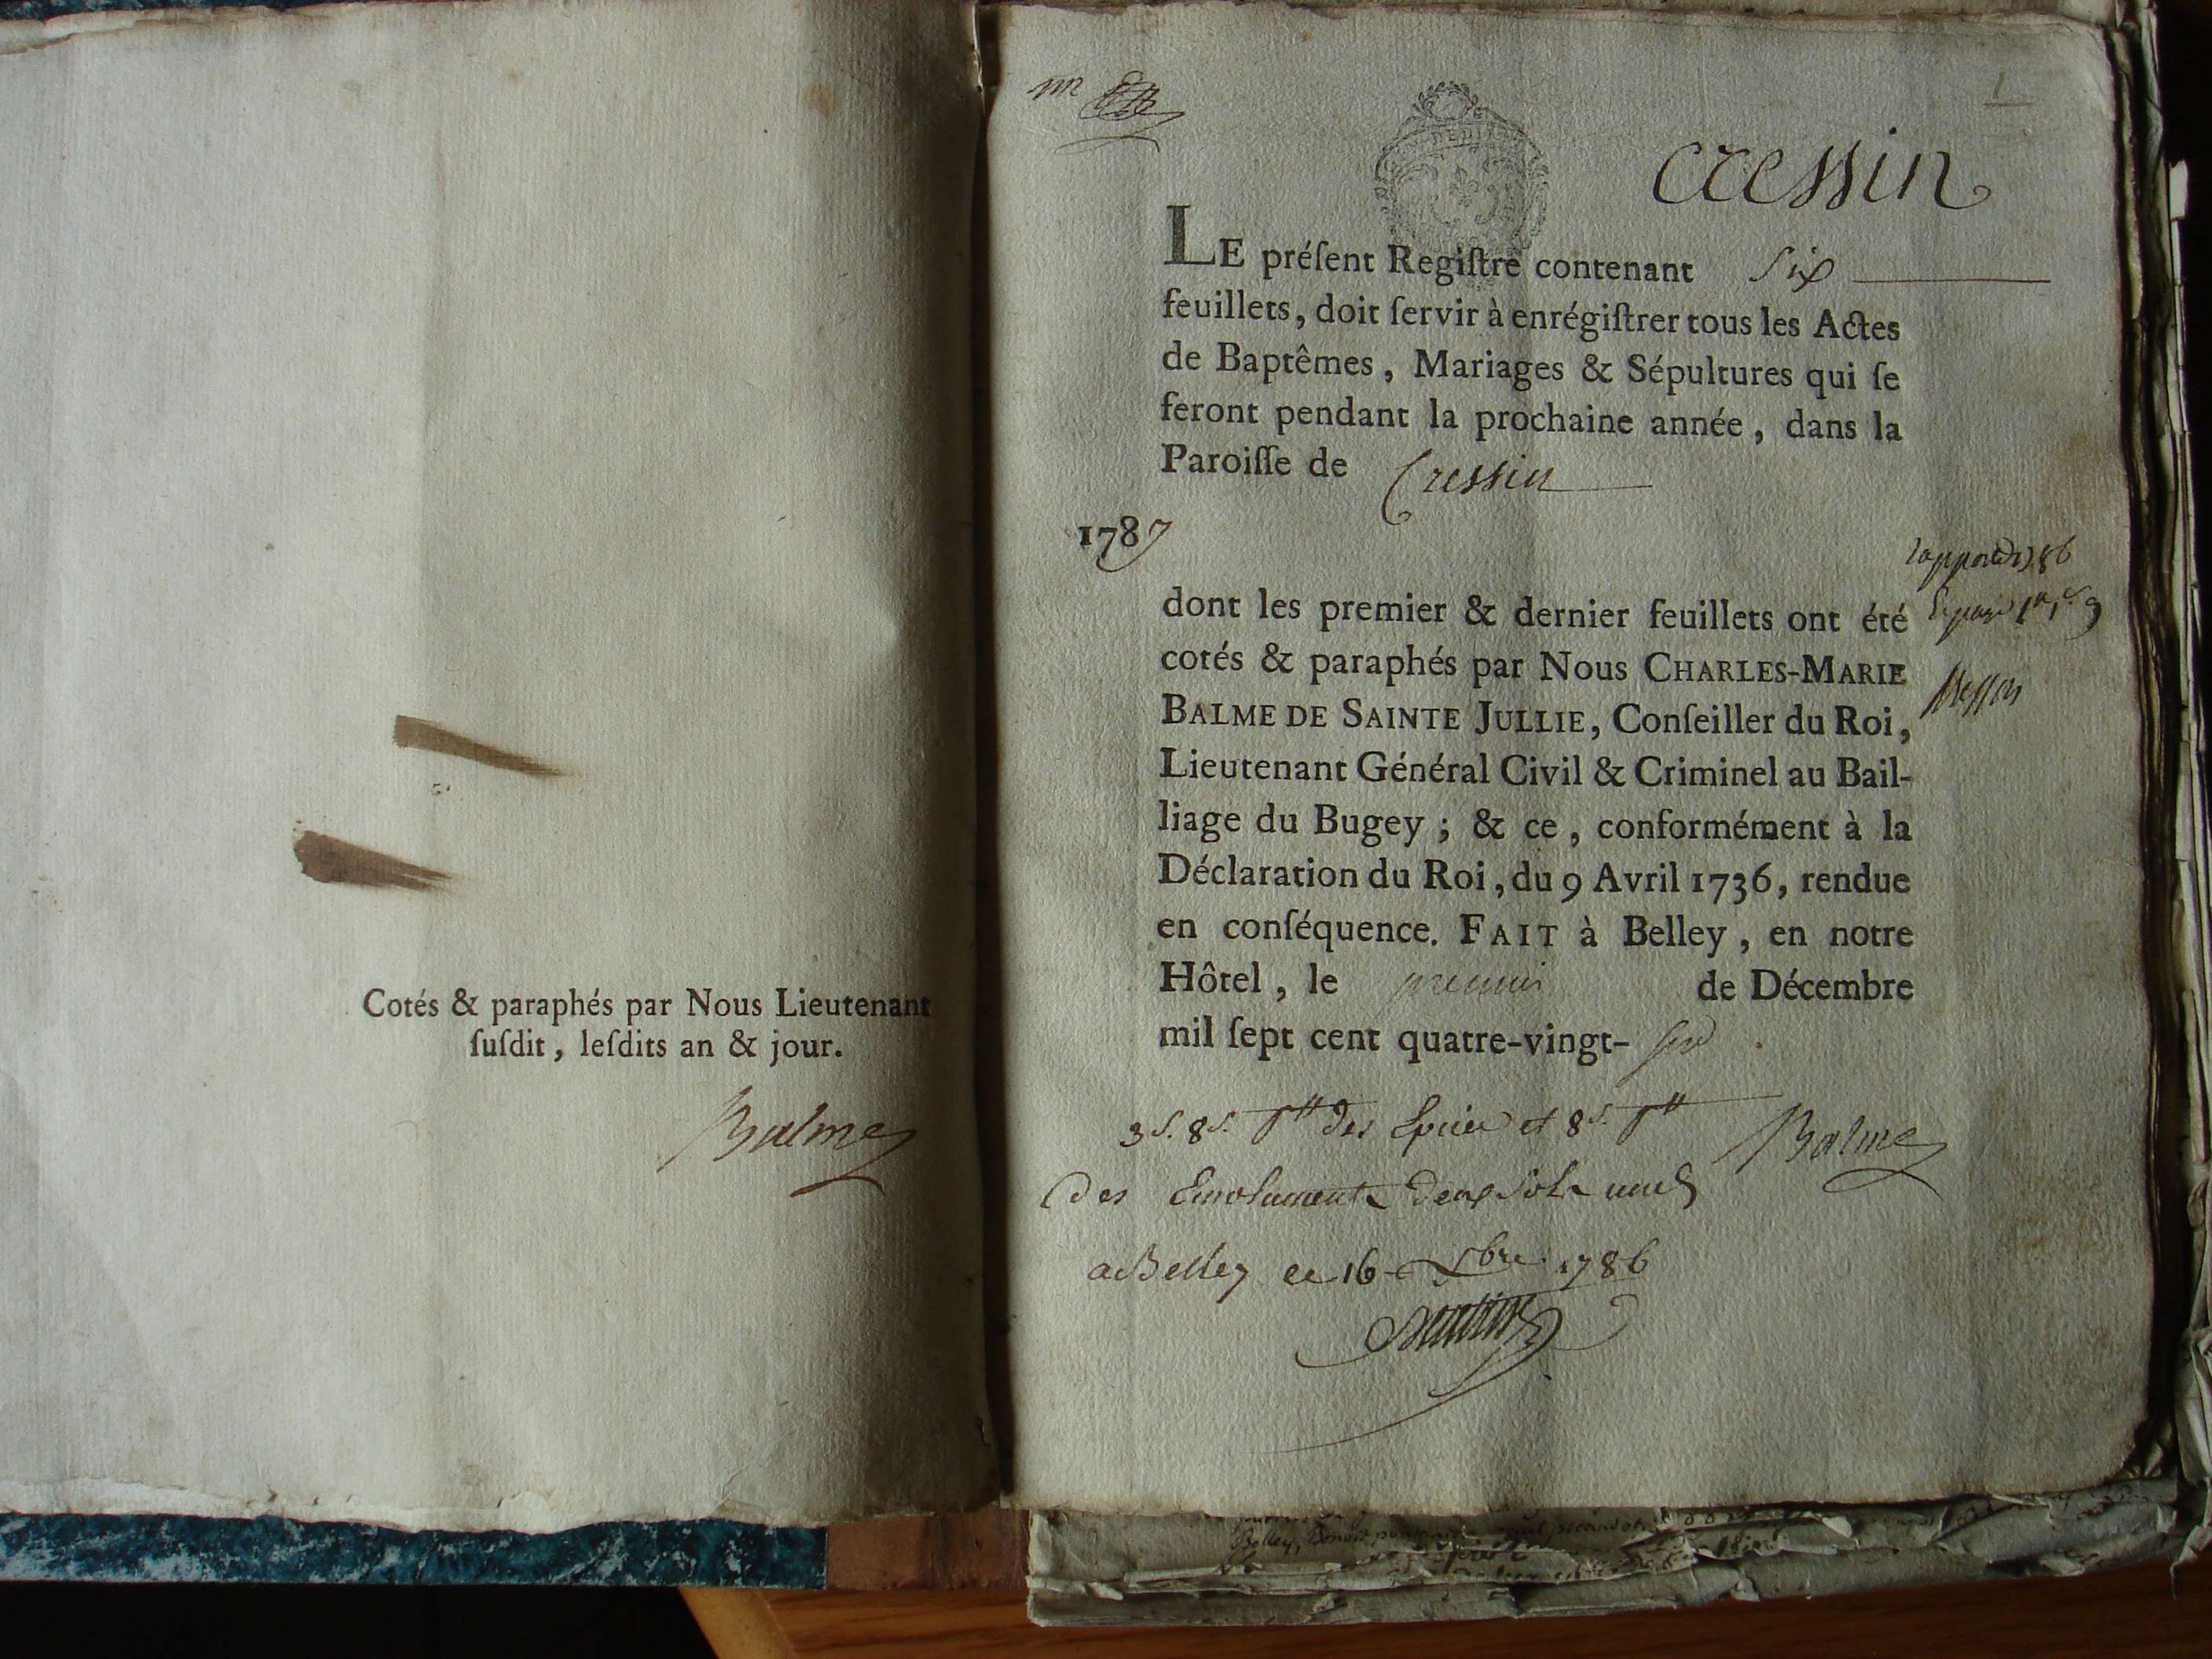 Cotés & paraphés par Nous Lieutenant
ſuſdit, leſdits an & jour.
Balme
1
cressin
LE préſent Regiſtre contenant six
feuillets, doit ſervir à enrégiſtrer tous les Actes
de Baptêmes, Mariages & Sépultures qui ſe
feront pendant la prochaine année, dans la
Paroiſſe de Cressin
1787
dont les premier & dernier feuillets ont été
cotés & paraphés par Nous CHARLES-MARIE
BALME DE SAINTE JULLIE, Conſeiller du Roi,
Lieutenant Général Civil & Criminel au Bail-
liage du Bugey ; & ce, conformément à la
Déclaration du Roi, du 9 Avril 1736, rendue
en conſéquence. FAIT à Belley, en notre
Hôtel, le premier de Décembre
mil ſept cent quatre-vingt-
3 s. 8 d. des Epices et 8 s.
Balme
Des Emoluments deux sols
a Belley ce 16 1786